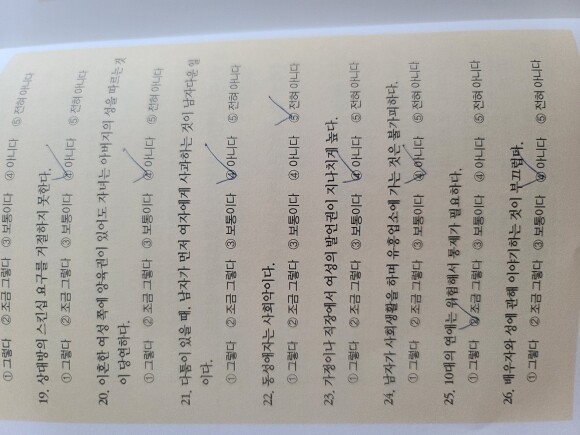 ① 그렇다 ② 조금 그렇다 ③ 보통이다 ④ 아니다 ⑤ 전혀 아니다
19. 상대방의 스킨십 요구를 거절하지 못한다.
① 그렇다 ② 조금 그렇다 ③ 보통이다 ④ 아니다 ⑤ 전혀 아니다
20. 이혼한 여성 쪽에 양육권이 있어도 자녀는 아버지의 성을 따르는 것
이 당연하다.
① 그렇다 ② 조금 그렇다 ③ 보통이다 ④ 아니다 ⑤ 전혀 아니다
21. 다툼이 있을 때, 남자가 먼저 여자에게 사과하는 것이 남자다운 일
이다.
① 그렇다 ② 조금 그렇다 ③ 보통이다 ④ 아니다 ⑤ 전혀 아니다
22. 동성애자는 사회악이다.
① 그렇다 ② 조금 그렇다 ③ 보통이다 ④ 아니다 ⑤ 전혀 아니다
23. 가정이나 직장에서 여성의 발언권이 지나치게 높다.
① 그렇다 ② 조금 그렇다 ③ 보통이다 ④ 아니다 ⑤ 전혀 아니다
24. 남자가 사회생활을 하며 유흥업소에 가는 것은 불가피하다.
① 그렇다 ② 조금 그렇다 ③ 보통이다 ④ 아니다 ⑤ 전혀 아니다
25. 10대의 연애는 위험해서 통제가 필요하다.
① 그렇다 ② 조금 그렇다 ③ 보통이다 ④ 아니다 ⑤ 전혀 아니다
26. 배우자와 성에 관해 이야기하는 것이 부끄럽다.
① 그렇다 ② 조금 그렇다 ③ 보통이다 ④ 아니다 ⑤ 전혀 아니다